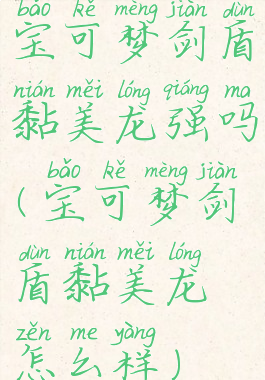 bǎo kě mèng jiàn dùn
宝可梦剑盾
nián měi lóng qiáng ma
黏美龙强吗
bǎo kě mèng jiàn
(宝可梦剑
dùn nián měi lóng
盾黏美龙
zěn me yàng
怎么样)